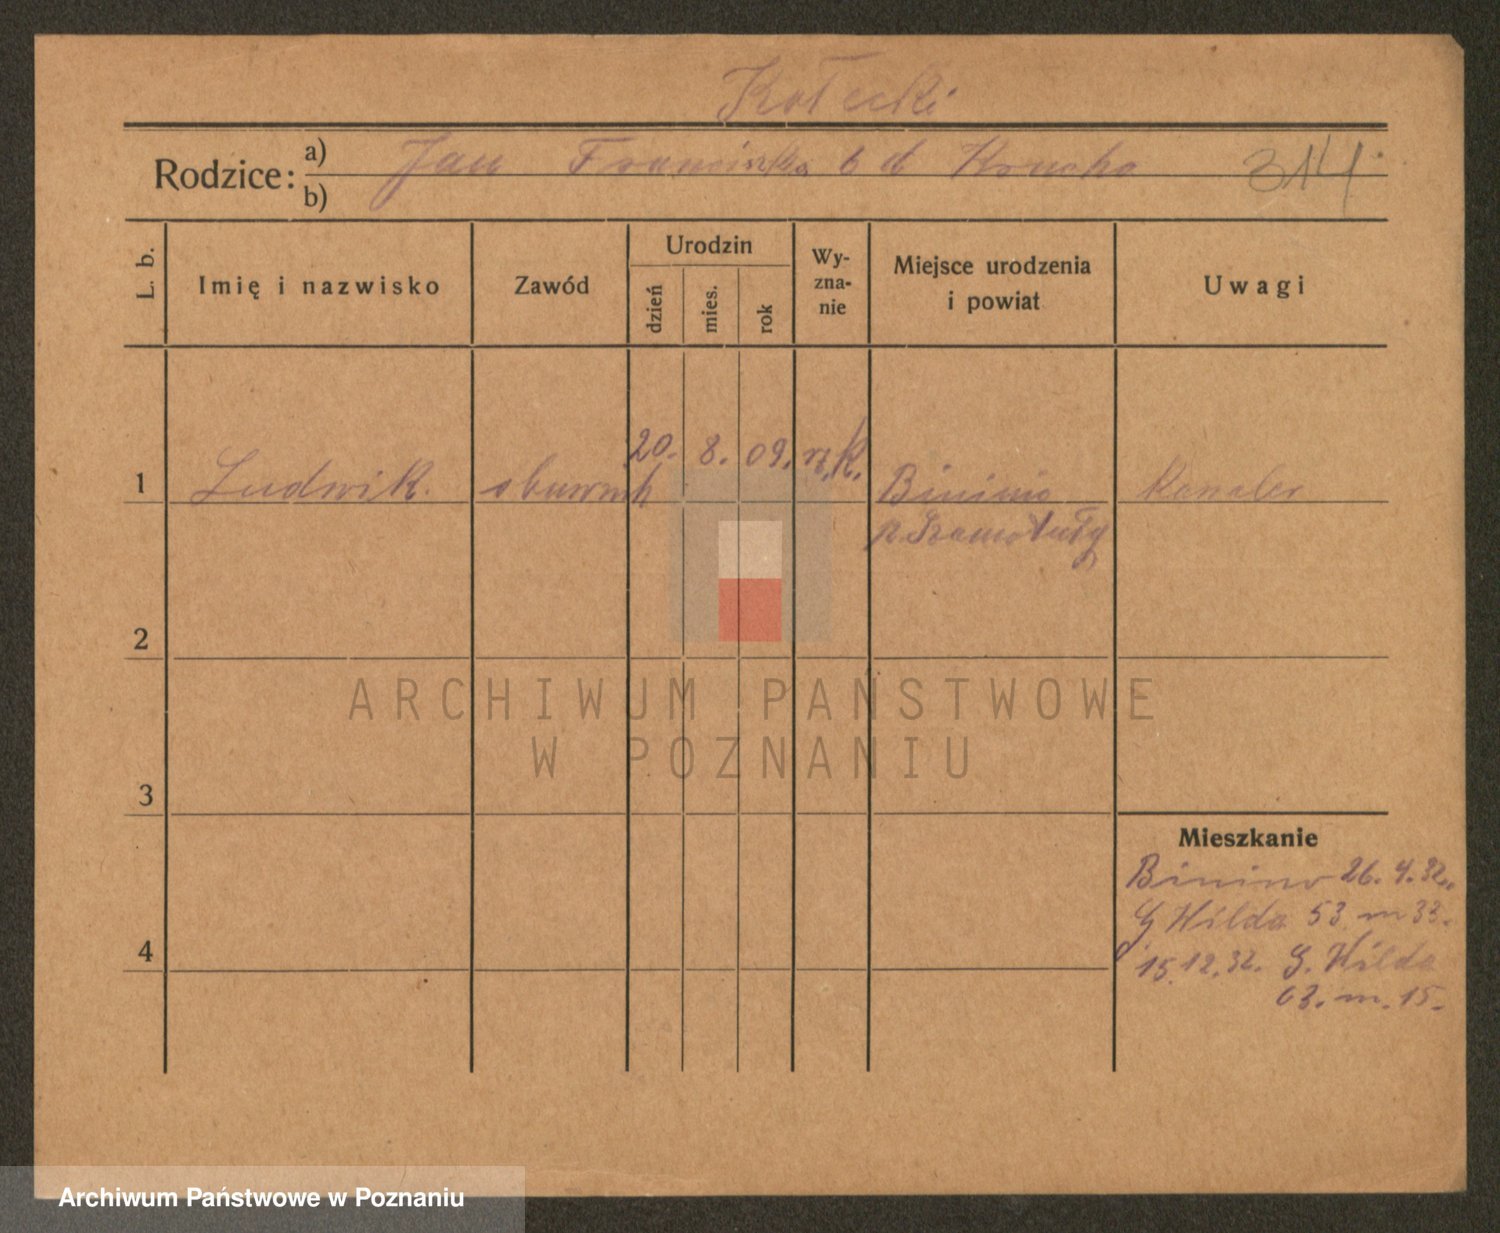 Kołecki
Rodzice: a) Jan Franciszka b d Konoha 314
b)
L. b. Imię i nazwisko Zawód Urodzin dzień mies. rok Wy-zna-nie Miejsce urodzenia i powiat Uwagi
1 Ludwik. obuwnik 20. 8. 09. rz. k. Binino kawaler
p. Szamotuły
2
ARCHIWUM PAŃSTWOWE
W POZNANIU
3
Mieszkanie
Binino 26. 4. 32.
G Wilda 53. m 33.
4
15.12.32. G. Wilda
63. m. 15.
Archiwum Państwowe w Poznaniu